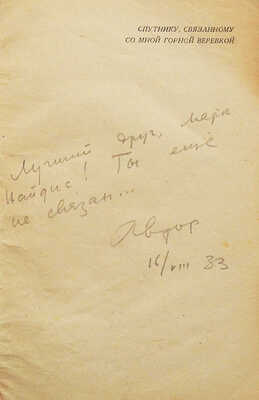 СПУТНИКУ, СВЯЗАННОМУ
СО МНОЙ ГОРНОЙ ВЕРЕВКОЙ
Лучший друг, Марк
Найдис! Ты ещё
не связан...
Автор
16/VIII 33